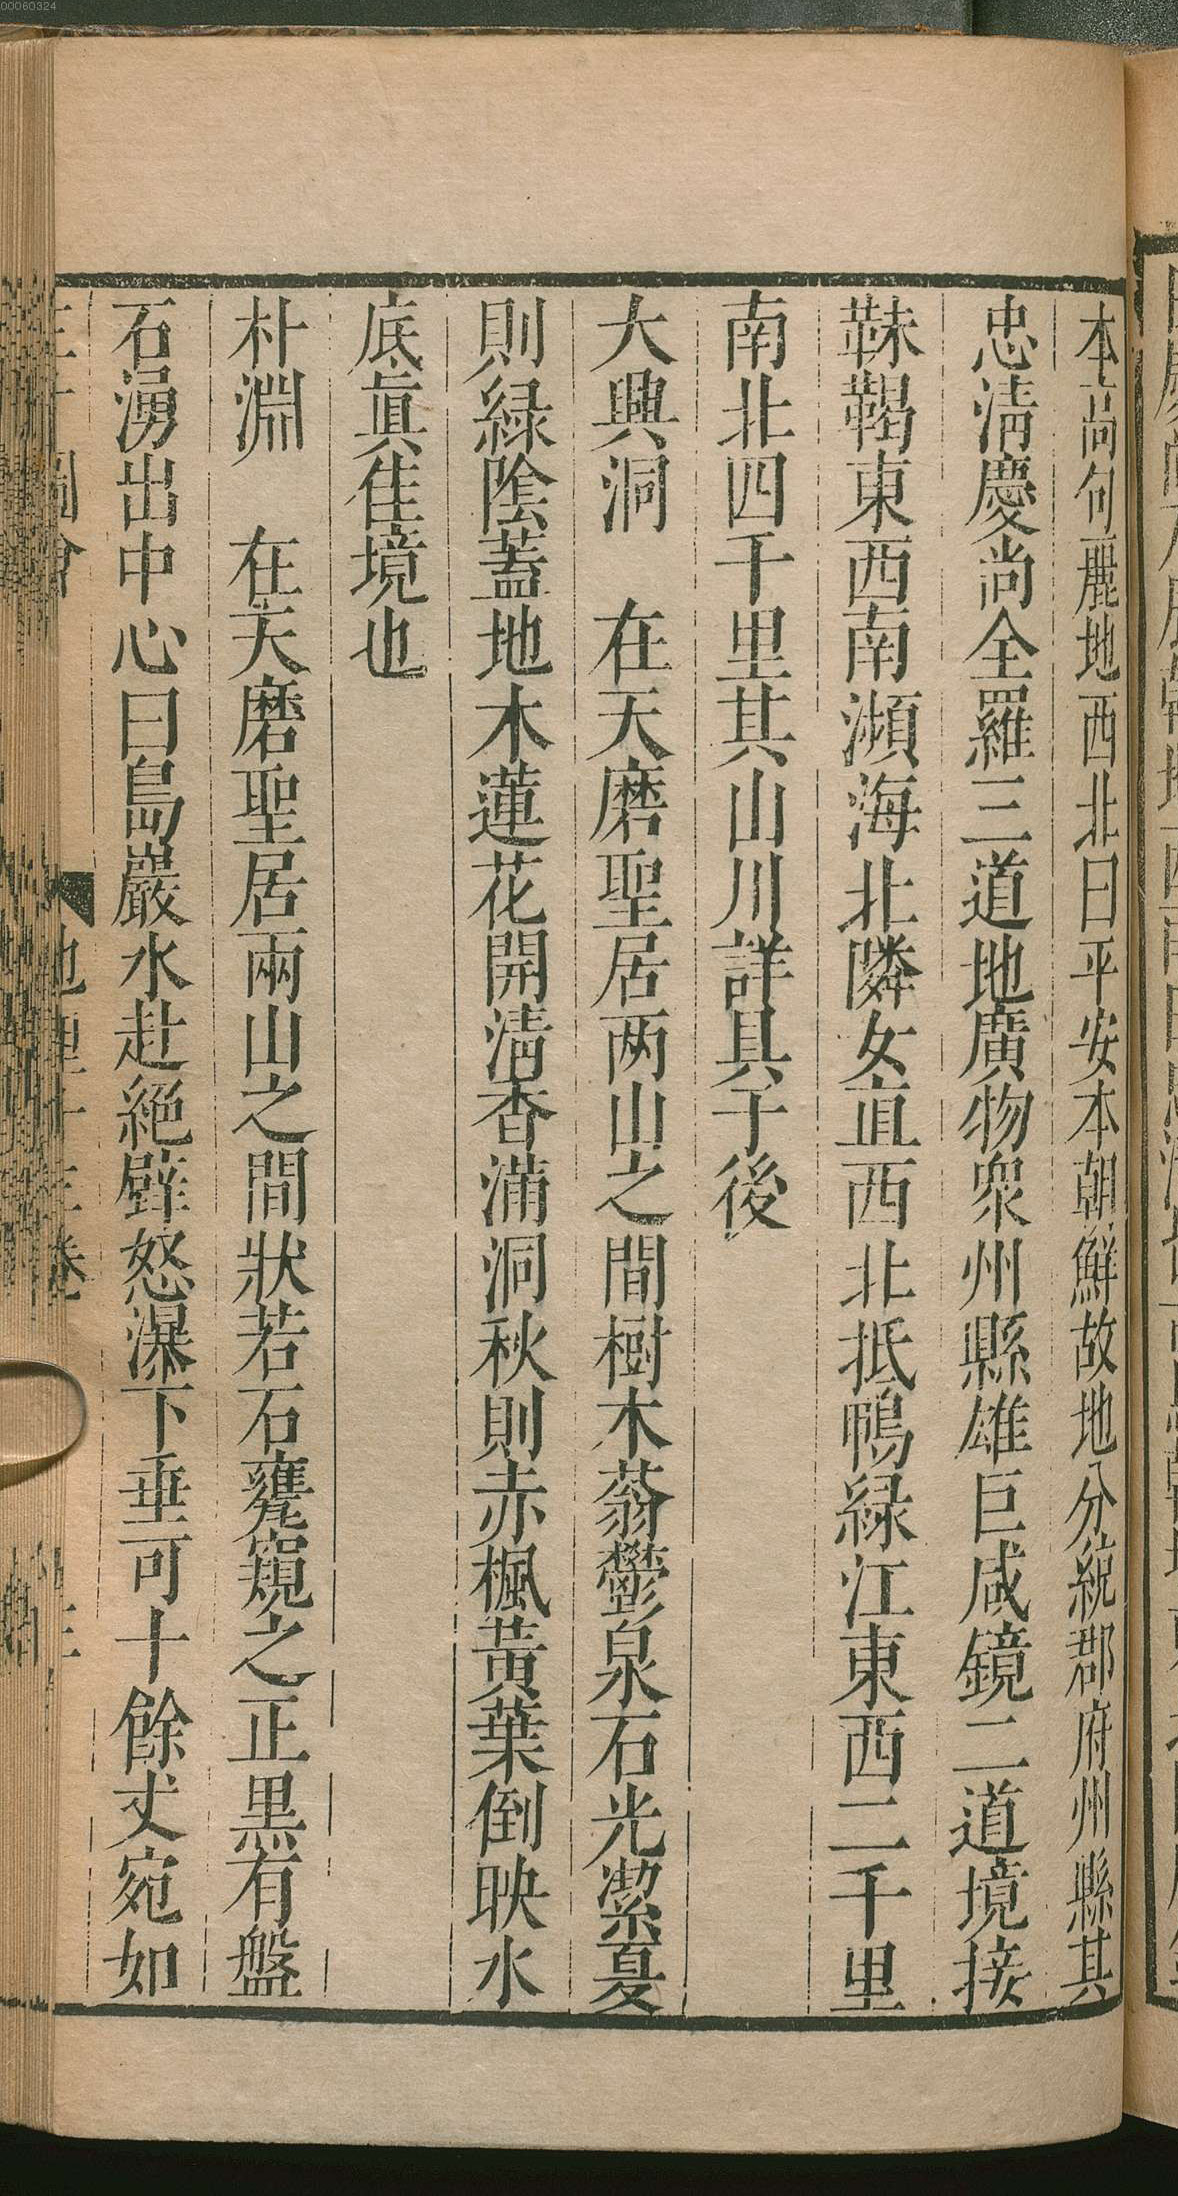 00060324
本高句麗地西北曰平安本朝鮮故地分統郡府州縣其
忠淸慶尚全羅三道地廣物衆州縣雄巨咸鏡二道境接
靺鞨東西南瀕海北隣女直西北抵鴨綠江東西二千里
南北四千里其山川詳具于後
大興洞　在天磨聖居两山之間樹木蓊鬱泉石光潔夏
則緑陰蓋地木蓮花開淸香滿洞秋則赤楓黃葉倒映水
底眞佳境也
朴淵　在天磨聖居兩山之間狀若石甕窺之正黒有盤
石湧出中心曰島巖水赴絕壁怒瀑下垂可十餘丈宛如